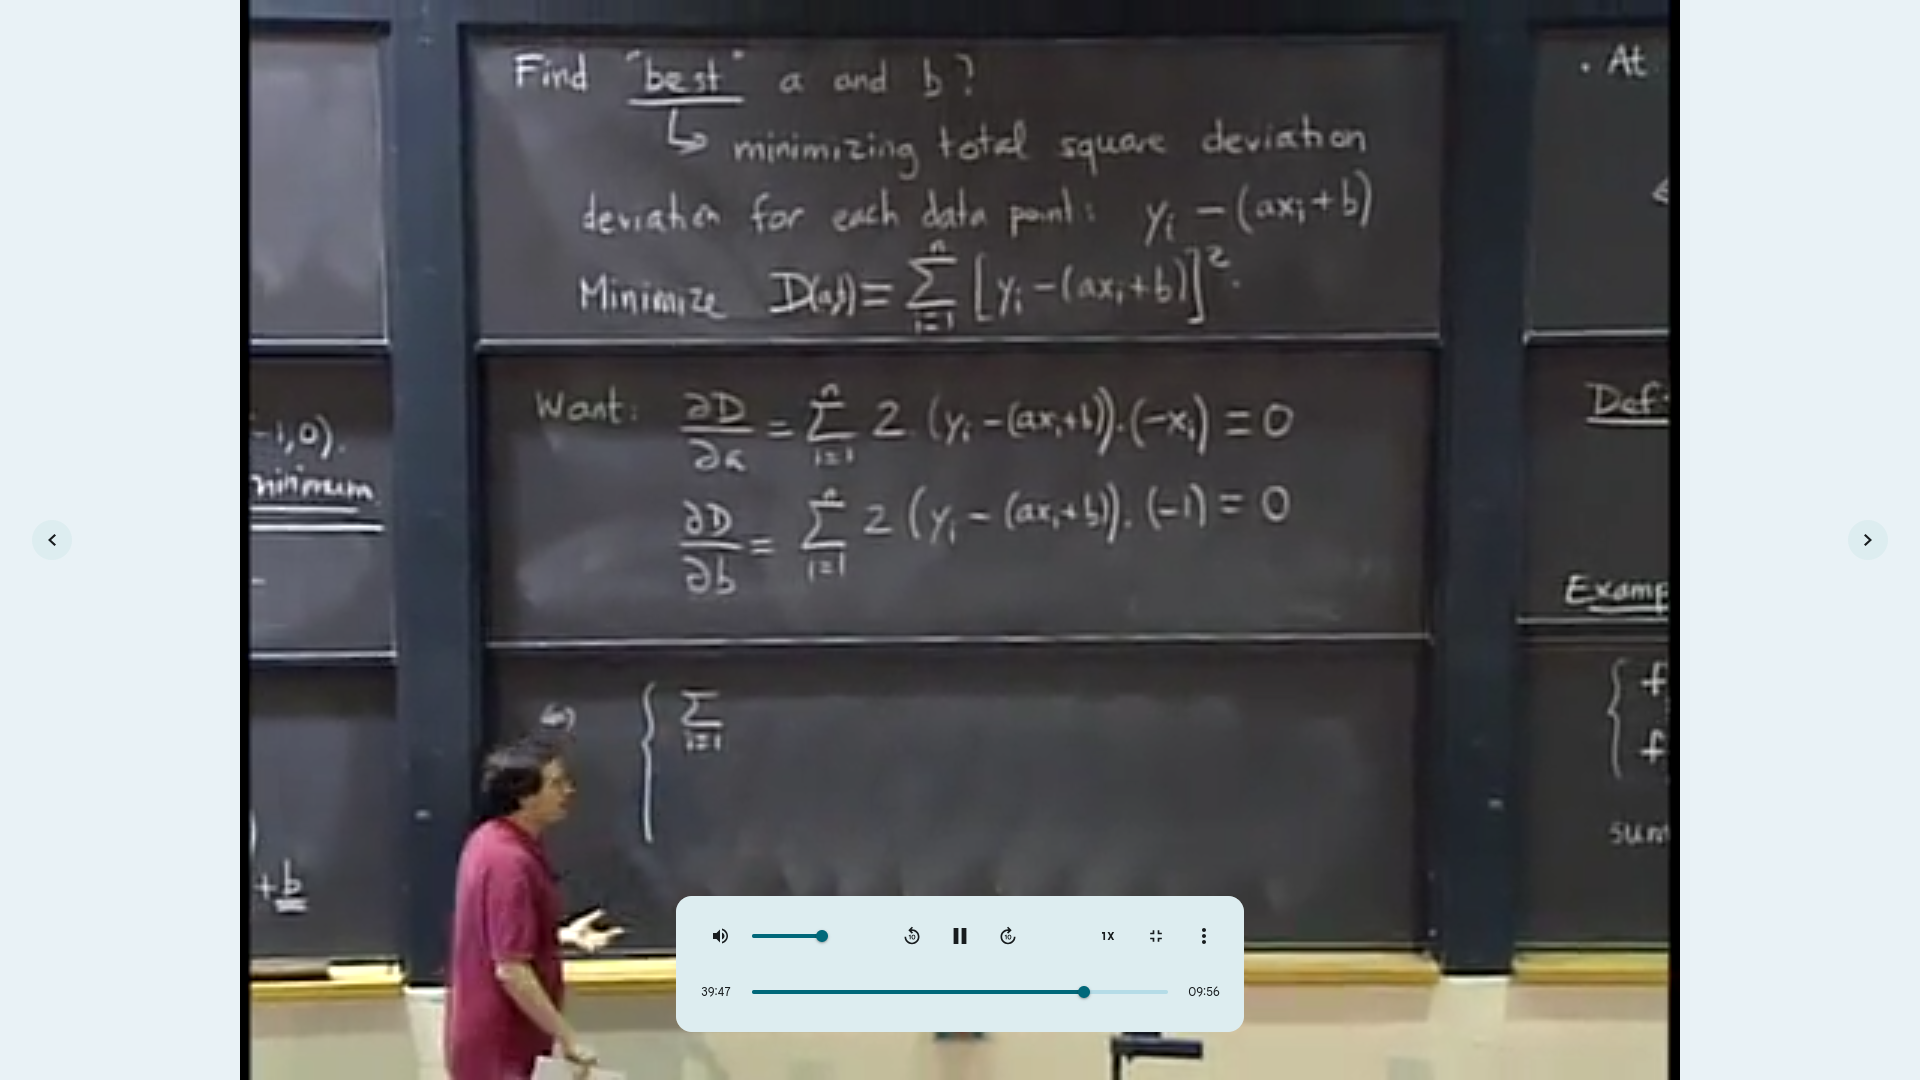 Find "best" a and b?
↳ minimizing total square deviation
deviation for each data point: yᵢ − (axᵢ + b)
Minimize D(a,b) = Σⁿᵢ₌₁ [yᵢ − (axᵢ + b)]².
Want: ∂D/∂a = Σⁿᵢ₌₁ 2 (yᵢ − (axᵢ + b)) · (−xᵢ) = 0
∂D/∂b = Σⁿᵢ₌₁ 2 (yᵢ − (axᵢ + b)) · (−1) = 0
{ Σᵢ₌₁
−1,0).
minimum
+b
• At
Def:
Examp
{ f
f
sum
10
10
1X
39:47
09:56